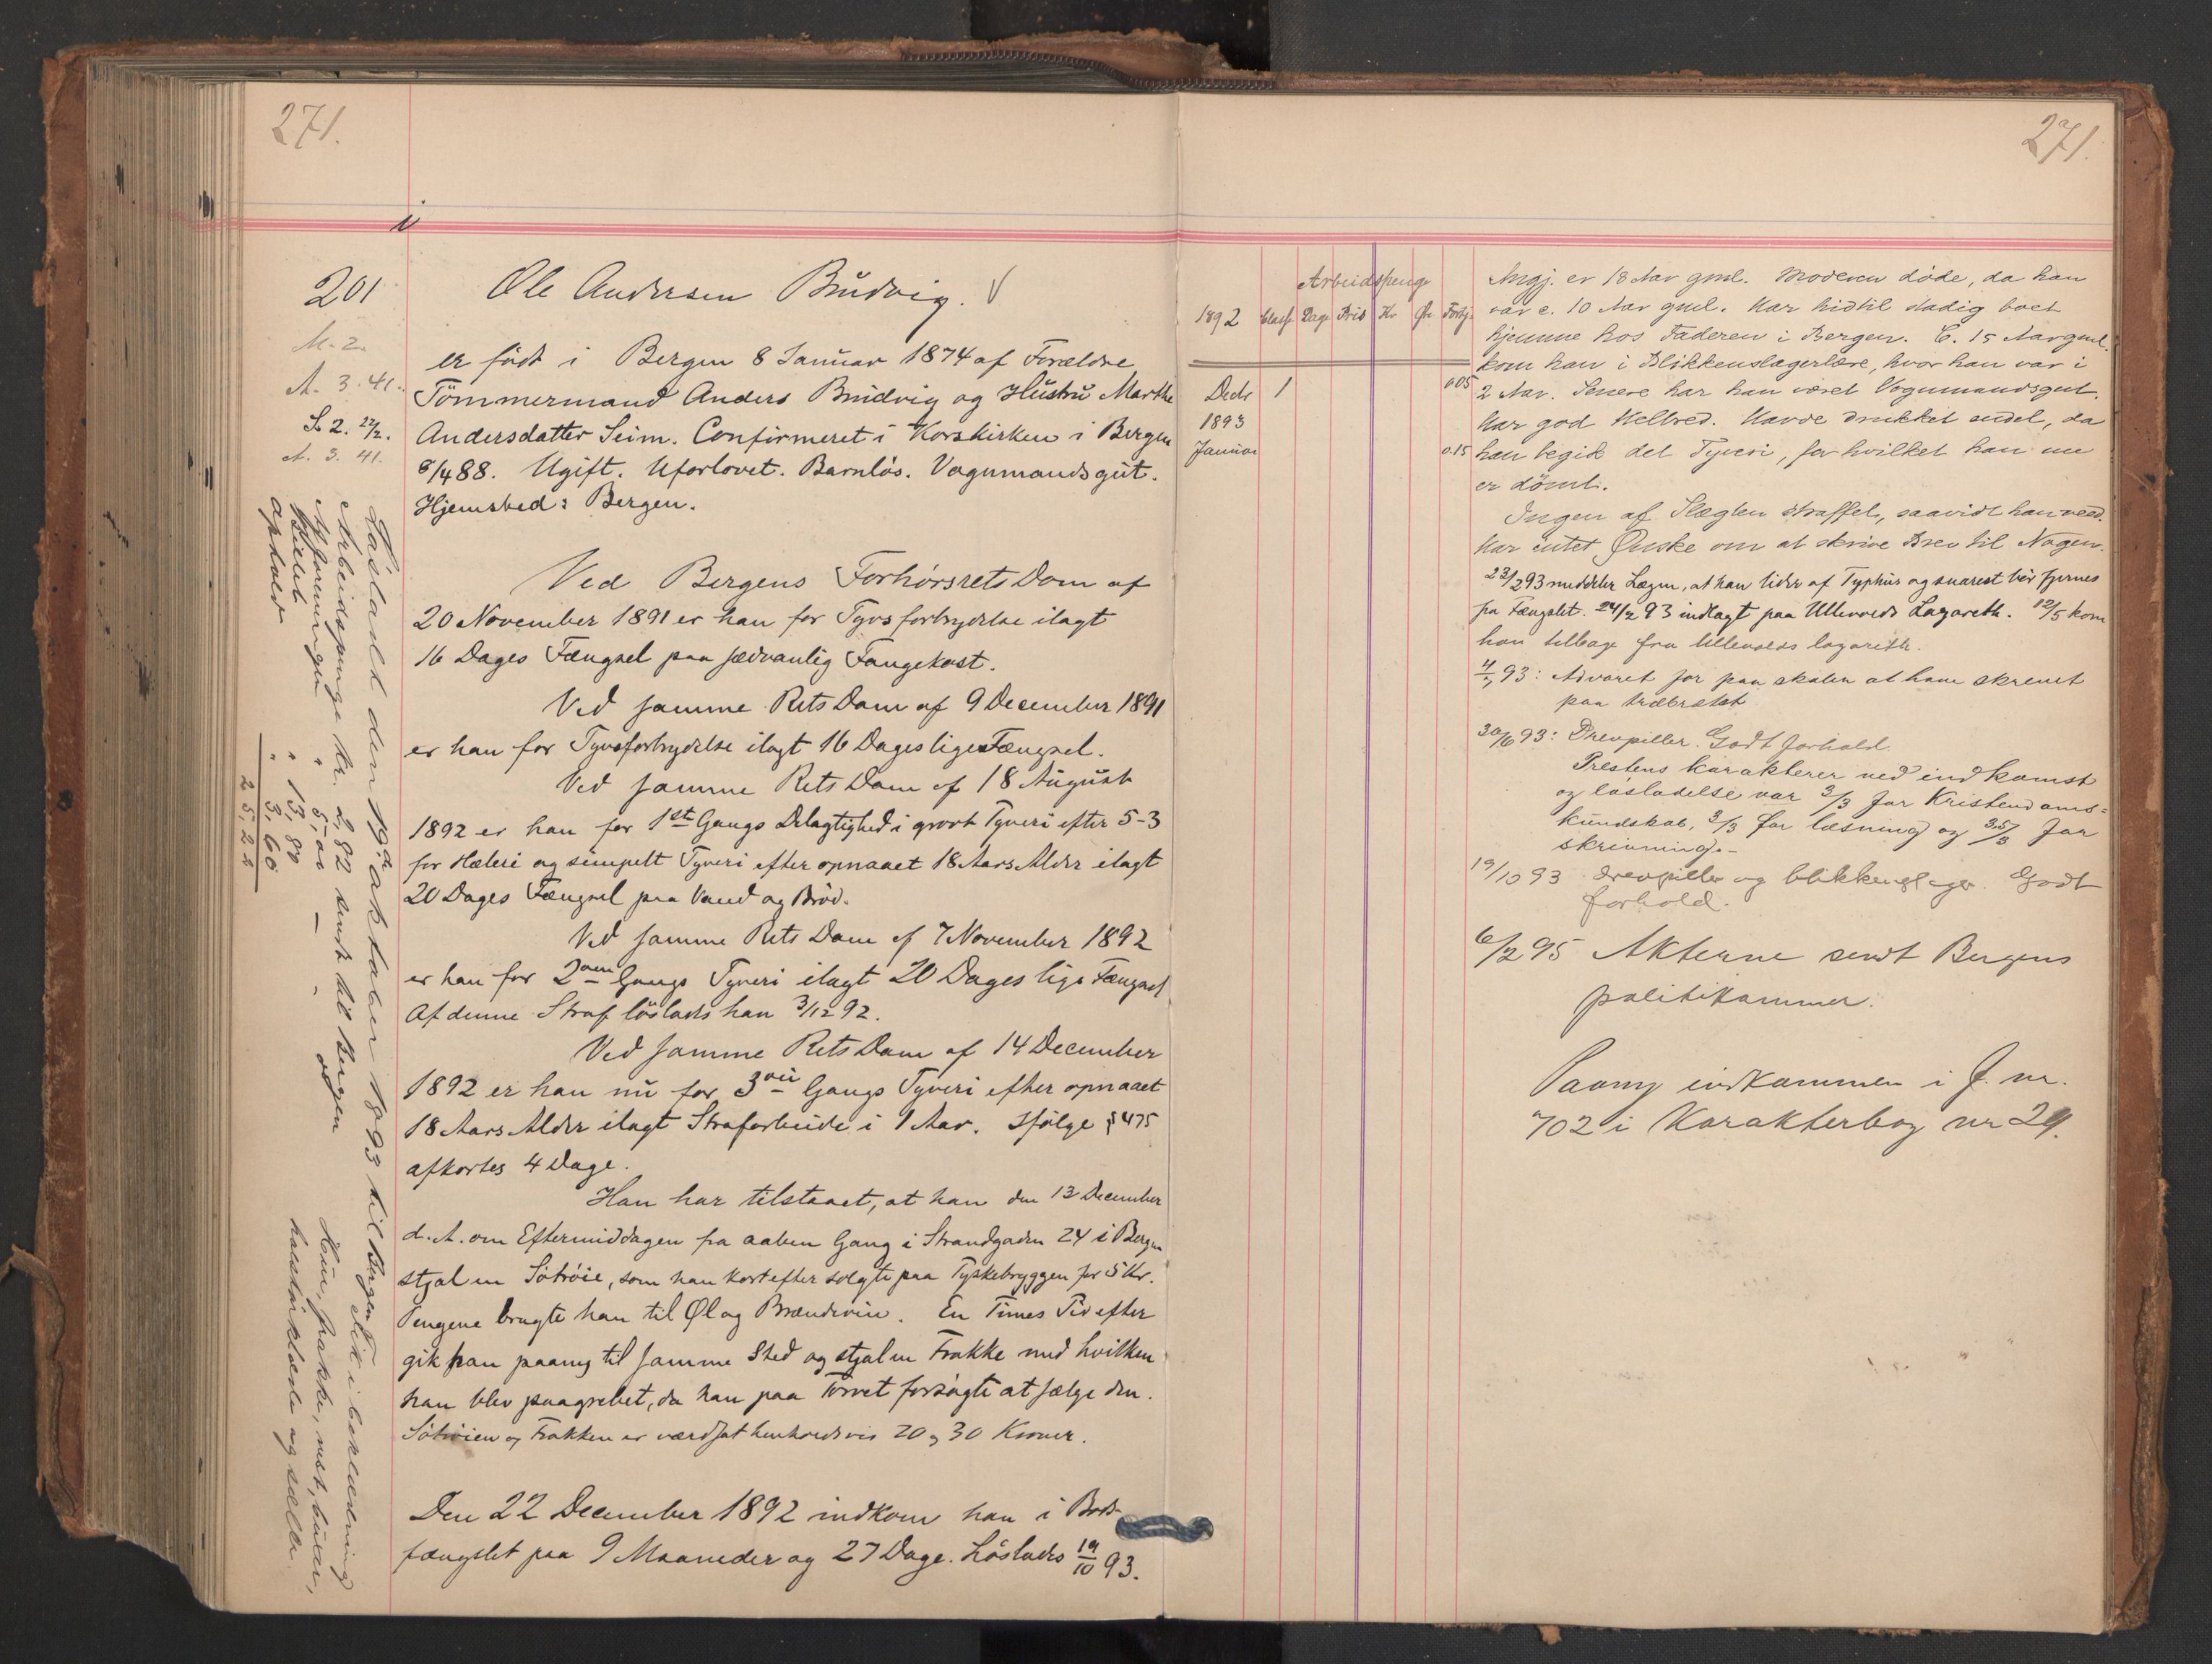 271.
201
M. 2.
A. 3. 41.
S. 2. 27/2.
A. 3. 41.
Ole Andersen Brudvig.
er født i Bergen 8 Januar 1874 af Forældre
Tömmermand Anders Brudvig og Hustru Marthe
Andersdatter Seim. Confirmeret i Korskirken i Bergen
8/4 88. Ugift. Uforlovet. Barnlös. Vognmandsgut.
Hjemsted: Bergen.
Ved Bergens Forhörsrets Dom af
20 November 1891 er han for Tyvsforbrydelse ilagt
16 Dages Fængsel paa sædvanlig Fangekost.
Ved samme Rets Dom af 9 December 1891
er han for Tyvsforbrydelse ilagt 16 Dages lige Fængsel.
Ved samme Rets Dom af 18 August
1892 er han for 1ste Gangs Delagtighed i grovt Tyveri efter 5-3
for Hæleri og simpelt Tyveri efter opnaaet 18 Aars Alder ilagt
20 Dages Fængsel paa Vand og Bröd.
Ved samme Rets Dom af 7 November 1892
er han for 2den Gangs Tyveri ilagt 20 Dages lige Fængsel
Af denne Straf löslades han 3/12 92.
Ved samme Rets Dom af 14 December
1892 er han nu for 3die Gangs Tyveri efter opnaaet
18 Aars Alder ilagt Strafarbeide i 1 Aar. Ifølge § 475
afkortes 4 Dage.
Han har tilstaaet, at han den 13 December
d. A. om Eftermiddagen fra aaben Gang i Strandgaden 24 i Bergen
stjal en Sötröie, som han kort efter solgte paa Tyskebryggen for 5 Kr.
Pengene brugte han til Øl og Brændevin. En Times Tid efter
gik han paany til samme Sted og stjal en Frakke med hvilken
han blev paagrebet, da han paa Torvet forsögte at sælge den.
Sötröien og Frakken er værdsat henholdsvis 20 og 30 Kroner.
Den 22 December 1892 indkom han i Bods-
fængslet paa 9 Maaneder og 27 Dage. Löslades 19/10 93.
Lösladt den 19de oktober 1893 til Bergen.
Arbeidspenge kr. 2,82 sendt til Bergen
Af foreningen " 5,00 –
Billet " 13,80 –
Ophold " 3,60
25,22
Fik i beklædning
Hue, frakke, vest, buxer,
halstørklæde og
271.
Arbeidspenge
1892 Classe Dage Pris Kr Øre Fortj.
Decbr 1 0.05
1893
Januar 0.15
Angj. er 18 Aar gml. Moderen døde, da han
var c. 10 Aar gml. Har hidtil stadig boet
hjemme hos Faderen i Bergen. C. 15 Aar gml.
kom han i Blikkenslagerlære, hvor han var i
2 Aar. Senere har han været Vognmandsgut.
Har god Helbred. Havde drukket endel, da
han begik det Tyveri, for hvilket han nu
er dömt.
Ingen af Slægten straffet, saavidt han veed.
Har intet Ønske om at skrive Brev til Nogen.
23/2 93 meddeler Lægen, at han lider af Typhus og snarest bör fjernes
fra Fængslet. 24/2 93 indlagt paa Ullevolds Lazareth. 12/5 kom
han tilbage fra Ullevolds lazareth.
93: Advaret for paa skolen at have skrevet
paa træbrættet
30/6 93: Drevpiller. Godt forhold.
Prestens karakterer ved indkomst
og løsladelse var 3/3 for Kristendoms-
kundskab, 3/3 for læsning og 3,5/3 for
skrivning.-
19/10 93 Drevpiller og blikkenslager. Godt
forhold.
6/2 95 Akterne sendt Bergens
politikammer.
Paany indkommen i J. nr.
702 i Karakterbog nr 29.